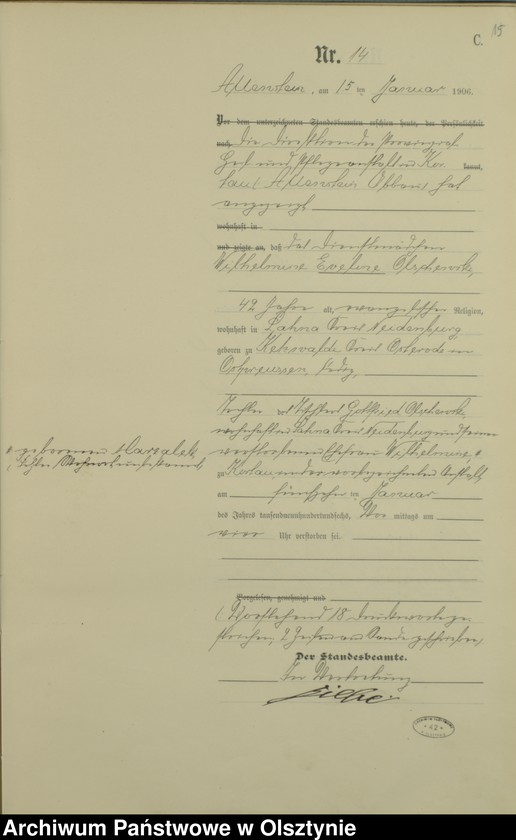 15
C.
Nr. 14
Allenstein, am 15ten Januar 1906.
Vor dem unterzeichneten Standesbeamten erschien heute, der Persönlichkeit
nach, Die Direktion der Provinzial
Heil und Pflegeanstalt zu Kor
tau (Allenstein) hat kannt,
angezeigt
wohnhaft in
und zeigte an, daß das Dienstmädchen
Wilhelmine Eveline
42 Jahre alt, evangelischer Religion,
wohnhaft in Lahna Kreis Neidenburg,
geboren zu Kreis Osterode in
Ostpreussen, ledig,
Tochter des Gottfried
wohnhaft zu Lahna Kreis Neidenburg und seiner
verstorbenen Ehefrau Wilhelmine,
geborenen Marzalek
zu Kortau, in der vorbezeichneten Anstalt,
am fünfzehnten Januar
des Jahres tausendneunhundertundsechs, Vor mittags um
vier Uhr verstorben sei.
Vorgelesen, genehmigt und
(Vorstehend 18 Druckworte ge
strichen, 2 Zeilen am Rande geschrieben)
Der Standesbeamte.
In Vertretung
Archiwum Państwowe w Olsztynie